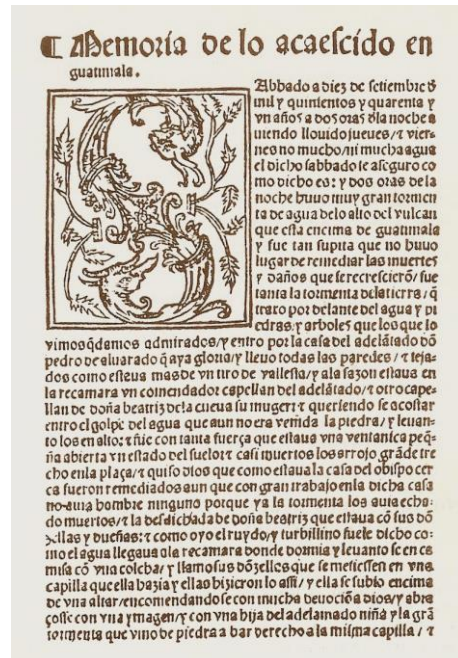 ¶ Memoria de lo acaescido en
guatimala.
Sabbado a diez de setiembre d̄
mil y quinientos y quarenta y
vn años a dos oras d̄la noche a
uiendo llouido jueues/ ⁊ vier-
nes no mucho/ni mucha agua
el dicho sabbado se aseguro co
mo dicho es: y dos oras de la
noche huuo muy gran tormen
ta de agua delo alto del vulcan
que esta encima de guatimala
y fue tan supita que no huuo
lugar de remediar las muertes
y daños que se recrescierō/ fue
tanta la tormenta dela tierra/ q̄
traxo por delante del agua y pi
edras/y arboles que los que lo
vimos q̄damos admirados/y entro por la casa del adelātado dō
pedro de aluarado q̄ aya gloria/y lleuo todas las paredes / ⁊ teja-
dos como esteus mas de vn tiro de vallesta/y ala sazon estaua en
la recamara vn comendador capellan del adelātado/⁊ otro cape-
llan de doña beatriz dela cueua su muger: ⁊ queriendo se acostar
entro el golpe del agua que aun no era venida la piedra/y leuan-
to los en alto: ⁊ fue con tanta fuerça que estaua vna ventanica peq̄-
ña abierta vn estado del suelo: ⁊ casi muertos los arrojo grāde tre
cho enla plaça/⁊ quiso dios que como estaua la casa del obispo cer
ca fueron remediados aun que con gran trabajo enla dicha casa
no auia hombre ninguno porque ya la tormenta los auia echa-
do muertos/⁊ la desdichada de doña beatriz que estaua cō sus dō
zellas y dueñas: ⁊ como oyo el ruydo/y turbillino fuele dicho co-
mo el agua llegaua ala recamara donde dormia y leuanto se en ca
misa cō vna colcha/y llamo sus dōzellas que se metiessen en vna
capilla que ella hazia y ellas hizieron lo assi/ y ella se subio encima
de vna altar/encomendando se con mucha deuociō a dios/y abra
çose con vna ymagen/y con vna hija del adelamado niña y la grā
tormenta que vino de piedra a dar derecho a la misma capilla / ⁊